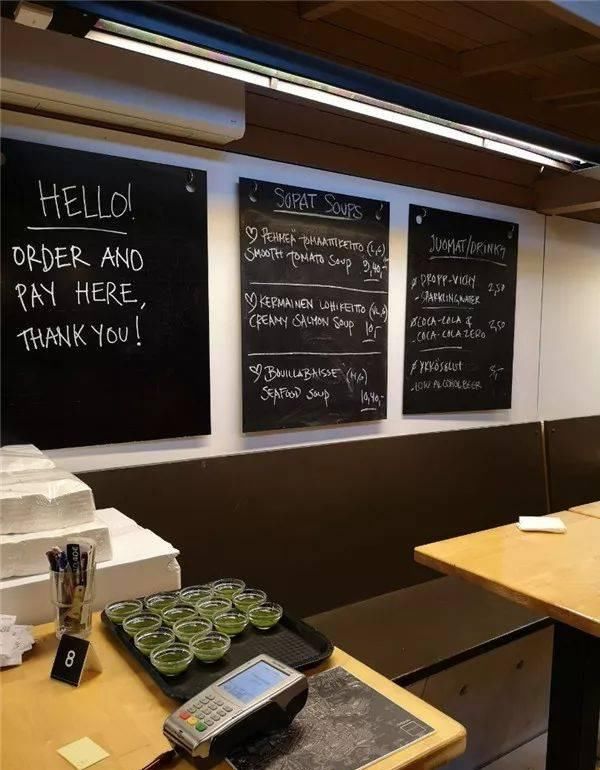 HELLO!
ORDER AND
PAY HERE,
THANK YOU!
SOPAT SOUPS
♡ PEHMEÄ TOMAATTIKEITTO (L,G)
SMOOTH TOMATO SOUP 9,40,-
♡ KERMAINEN LOHIKEITTO (VL,G)
CREAMY SALMON SOUP 10,-
♡ BOUILLABAISSE (M,G)
SEAFOOD SOUP 10,40,-
JUOMAT/DRINKS
DROPP-VICHY 2,50
-SPARKLING WATER
COCA-COLA &
COCA-COLA ZERO 2,50
YKKÖSOLUT 3,-
-LOW ALCOHOL BEER
8